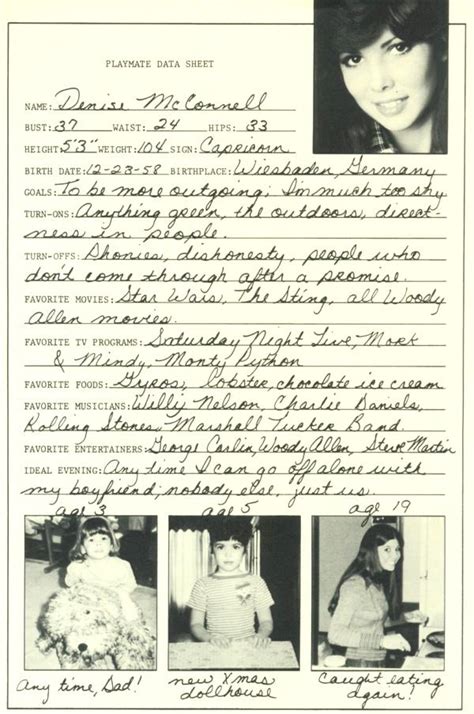 PLAYMATE DATA SHEET
NAME: Denise McConnell
BUST: 37 WAIST: 24 HIPS: 33
HEIGHT: 5'3" WEIGHT: 104 SIGN: Capricorn
BIRTH DATE: 12-23-58 BIRTHPLACE: Wiesbaden, Germany
GOALS: To be more outgoing; I'm much too shy
TURN-ONS: Anything green, the outdoors, direct-
ness in people.
TURN-OFFS: Phonies, dishonesty, people who
don't come through after a promise.
FAVORITE MOVIES: Star Wars, The Sting, all Woody
Allen movies.
FAVORITE TV PROGRAMS: Saturday Night Live, Mork
& Mindy, Monty Python
FAVORITE FOODS: Gyros, lobster, chocolate ice cream
FAVORITE MUSICIANS: Willy Nelson, Charlie Daniels,
Rolling Stones, Marshall Tucker Band.
FAVORITE ENTERTAINERS: George Carlin, Woody Allen, Steve Martin
IDEAL EVENING: Any time I can go off alone with
my boyfriend; nobody else, just us.
age 3 age 5 age 19
Any time, Dad!
new Xmas
dollhouse
Caught eating
again!